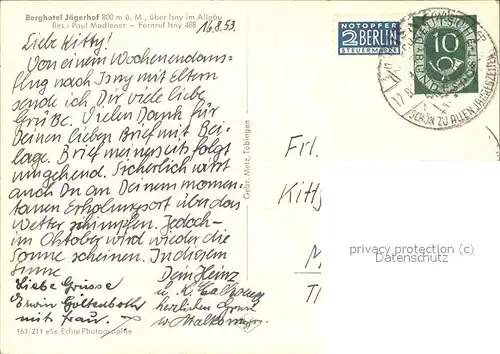 Berghotel Jägerhof 800 m ü. M., über Isny im Allgäu
Bes.: Paul Madlener – Fernruf Isny 488
16.8.53
Liebe Kitty!
Von einem Wochenendaus-
flug nach Isny mit Eltern
sende ich Dir viele liebe
Grüße. Vielen Dank für
Deinen lieben Brief mit Bei-
lage. Brief meinerseits folgt
umgehend. Sicherlich wirst
auch Du an Deinem momen-
tanen Erholungsort über das
Wetter schimpfen. Jedoch
im Oktober wird wieder die
Sonne scheinen. In diesem
Sinne
Dein Heinz
Liebe Grüsse
Erwin
mit Frau.
herzlichen
163/211 eSe Echte Photographie
Gebr. Metz, Tübingen
NOTOPFER
2 BERLIN
STEUERMARKE
10
SCHÖN ZU ALLEN JAHRESZEITEN
Frl.
Kitty
privacy protection
Datenschutz